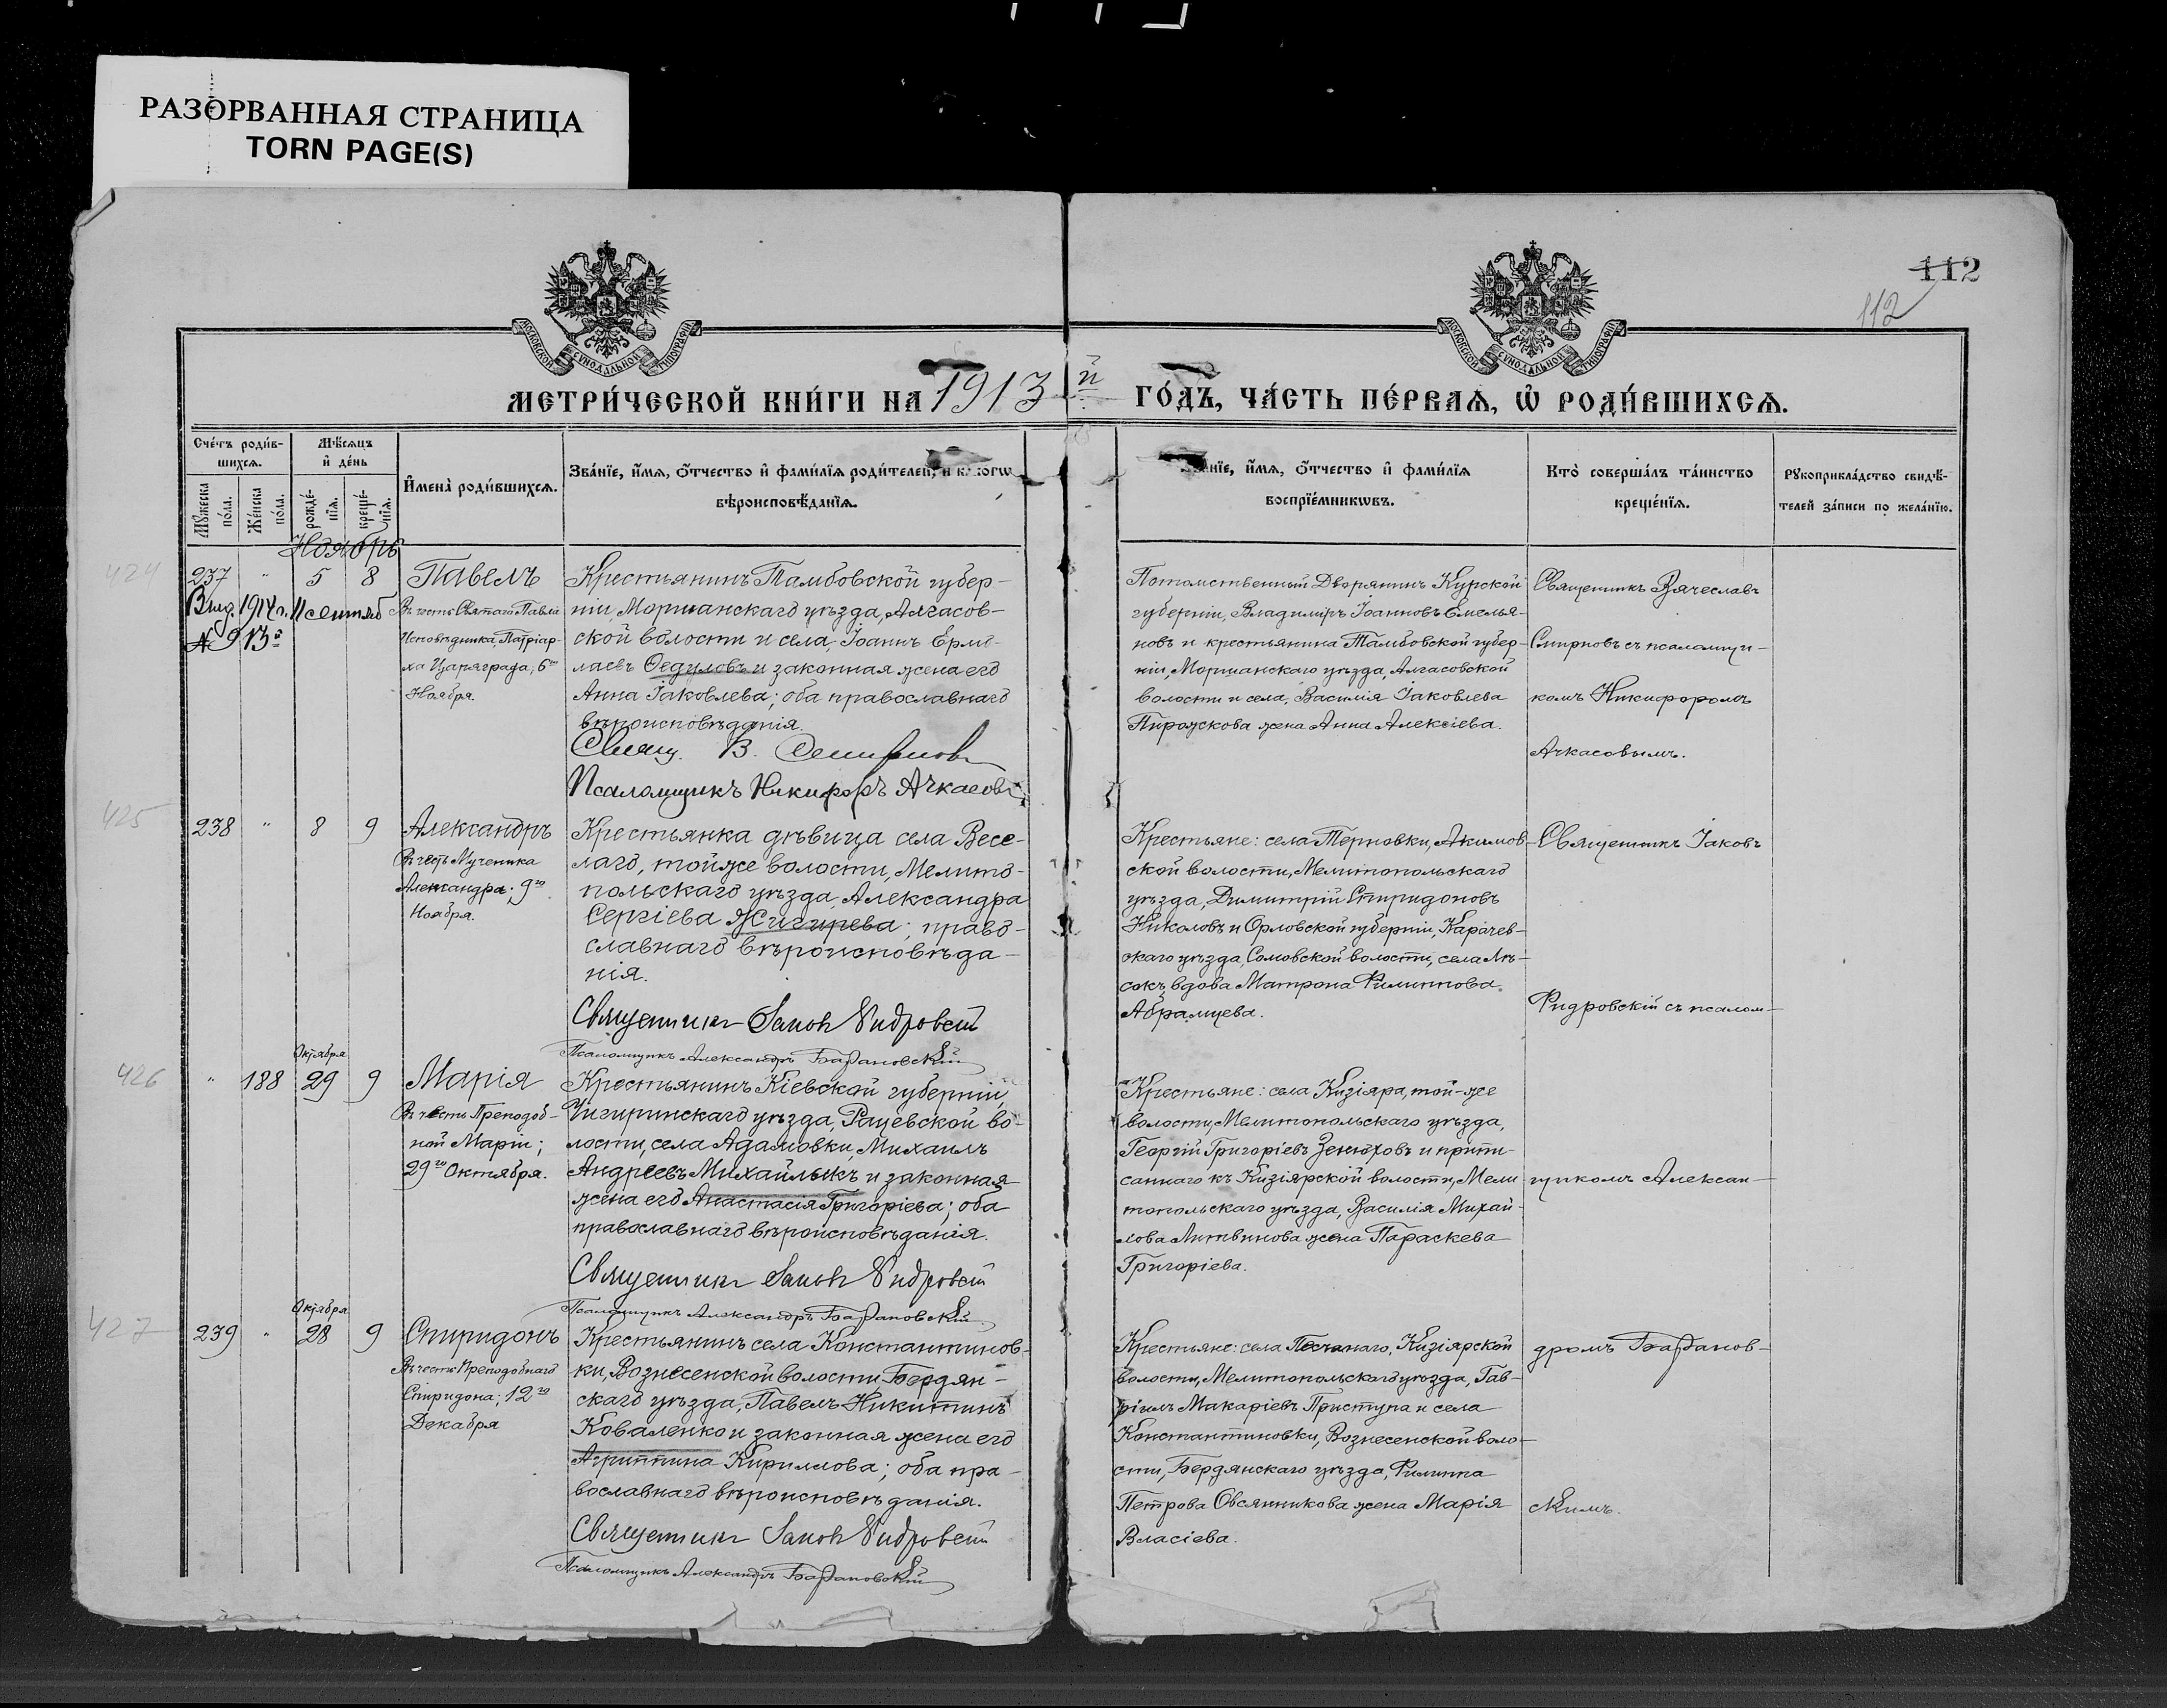 РАЗОРВАННАЯ СТРАНИЦА
TORN PAGE(S)
112
112
МОСКОВСКОЙ СѴНОДАЛЬНОЙ ТИПОГРАФІИ
МОСКОВСКОЙ СѴНОДАЛЬНОЙ ТИПОГРАФІИ
МЕТРИ́ЧЕСКОЙ КНИ́ГИ НА 1913й ГО́ДЪ, ЧА́СТЬ ПЕ́РВАѦ, Ѡ҆ РОДИ́ВШИХСѦ.
Сче́тъ роди́в-
шихсѧ.
Мѣ́сѧцъ
и҆ де́нь
Мꙋ́жеска
по́ла.
Же́нска
по́ла.
рожде́-
нїѧ.
креще́-
нїѧ.
И҆мена̀ роди́вшихсѧ.
Зва́нїе, и҆́мѧ, ѻ҆́тчество и҆ фами́лїѧ роди́телей, и
вѣроисповѣ́данїѧ.
и҆́мѧ, ѻ҆́тчество и҆ фами́лїѧ
воспрїе́мникѡвъ.
Кто̀ соверша́лъ та́инство
креще́нїѧ.
Рꙋкоприкла́дство свидѣ́-
телей за́писи по жела́нїю.
Ноябрь
424
237 " 5 8
Выд. 1914 г. 11 сентяб
№ 913
Павелъ
Въ честь Святаго Павла
Исповѣдника, Патріар-
ха Царяграда; 6го
Ноября.
Крестьянинъ Тамбовской губер-
ніи, Моршанскаго уѣзда, Алгасов-
ской волости и села, Іоаннъ Ермо-
лаевъ Ѳедуловъ и законная жена его
Анна Іаковлева; оба православнаго
вѣроисповѣданія.
Свящ. В. Смирновъ
Псаломщикъ Никифоръ Ачкасовъ
Потомственный Дворянинъ Курской
губерніи, Владиміръ Іоанновъ Емелья-
новъ и крестьянина Тамбовской губер-
ніи, Моршанскаго уѣзда, Алгасовской
волости и села, Василія Іаковлева
Пирожскова жена Анна Алексіева.
Священникъ Вячеславъ
Смирновъ съ псаломщи-
комъ Никифоромъ
Ачкасовымъ.
425
238 " 8 9
Александръ
Въ честь Мученика
Александра; 9го
Ноября.
Крестьянка дѣвица села Весе-
лаго, тойже волости, Мелито-
польскаго уѣзда, Александра
Сергіева Жигирева; право-
славнаго вѣроисповѣда-
нія.
Священникъ Іаковъ Фидровскій
Псаломщикъ Александръ Барановскій
Крестьяне: села Терновки, Акимов-
ской волости, Мелитопольскаго
уѣзда, Димитрій Спиридоновъ
Николовъ и Орловской губерніи, Карачев-
скаго уѣзда, Сомовской волости, села Лѣ-
сокъ, вдова Матрона Филиппова
Абрамцева.
Священникъ Іаковъ
Фидровскій съ псалом-
426
" 188 Октября 29 9
Марія
Въ честь Преподоб-
ной Маріи;
29го Октября.
Крестьянинъ Кіевской губерніи,
Чигиринскаго уѣзда, Рацевской во-
лости, села Адамовки, Михаилъ
Андреевъ Михайлыкъ и законная
жена его Анастасія Григоріева; оба
православнаго вѣроисповѣданія.
Священникъ Іаковъ Фидровскій
Псаломщикъ Александръ Барановскій.
Крестьяне: села Кизіяра, той-же
волости, Мелитопольскаго уѣзда,
Георгій Григоріевъ Зенюховъ и припи-
саннаго къ Кизіярской волости, Мели
топольскаго уѣзда, Василія Михай-
лова Литвинова жена Параскева
Григоріева.
щикомъ Алексан-
427
239 " Октября 28 9
Спиридонъ
Въ честь Преподобнаго
Спиридона; 12го
Декабря
Крестьянинъ села Константинов-
ки, Вознесенской волости, Бердян-
скаго уѣзда, Павелъ Никитинъ
Коваленко и законная жена его
Агриппина Кириллова; оба пра-
вославнаго вѣроисповѣданія.
Священникъ Іаковъ Фидровскій
Псаломщикъ Александръ Барановскій
Крестьяне: села Песчанаго, Кизіярской
волости, Мелитопольскаго уѣзда, Гав-
ріилъ Макаріевъ Приступа и села
Константиновки, Вознесенской воло-
сти, Бердянскаго уѣзда, Филиппа
Петрова Овсянникова жена Марія
Власіева.
дромъ Баранов-
скимъ.